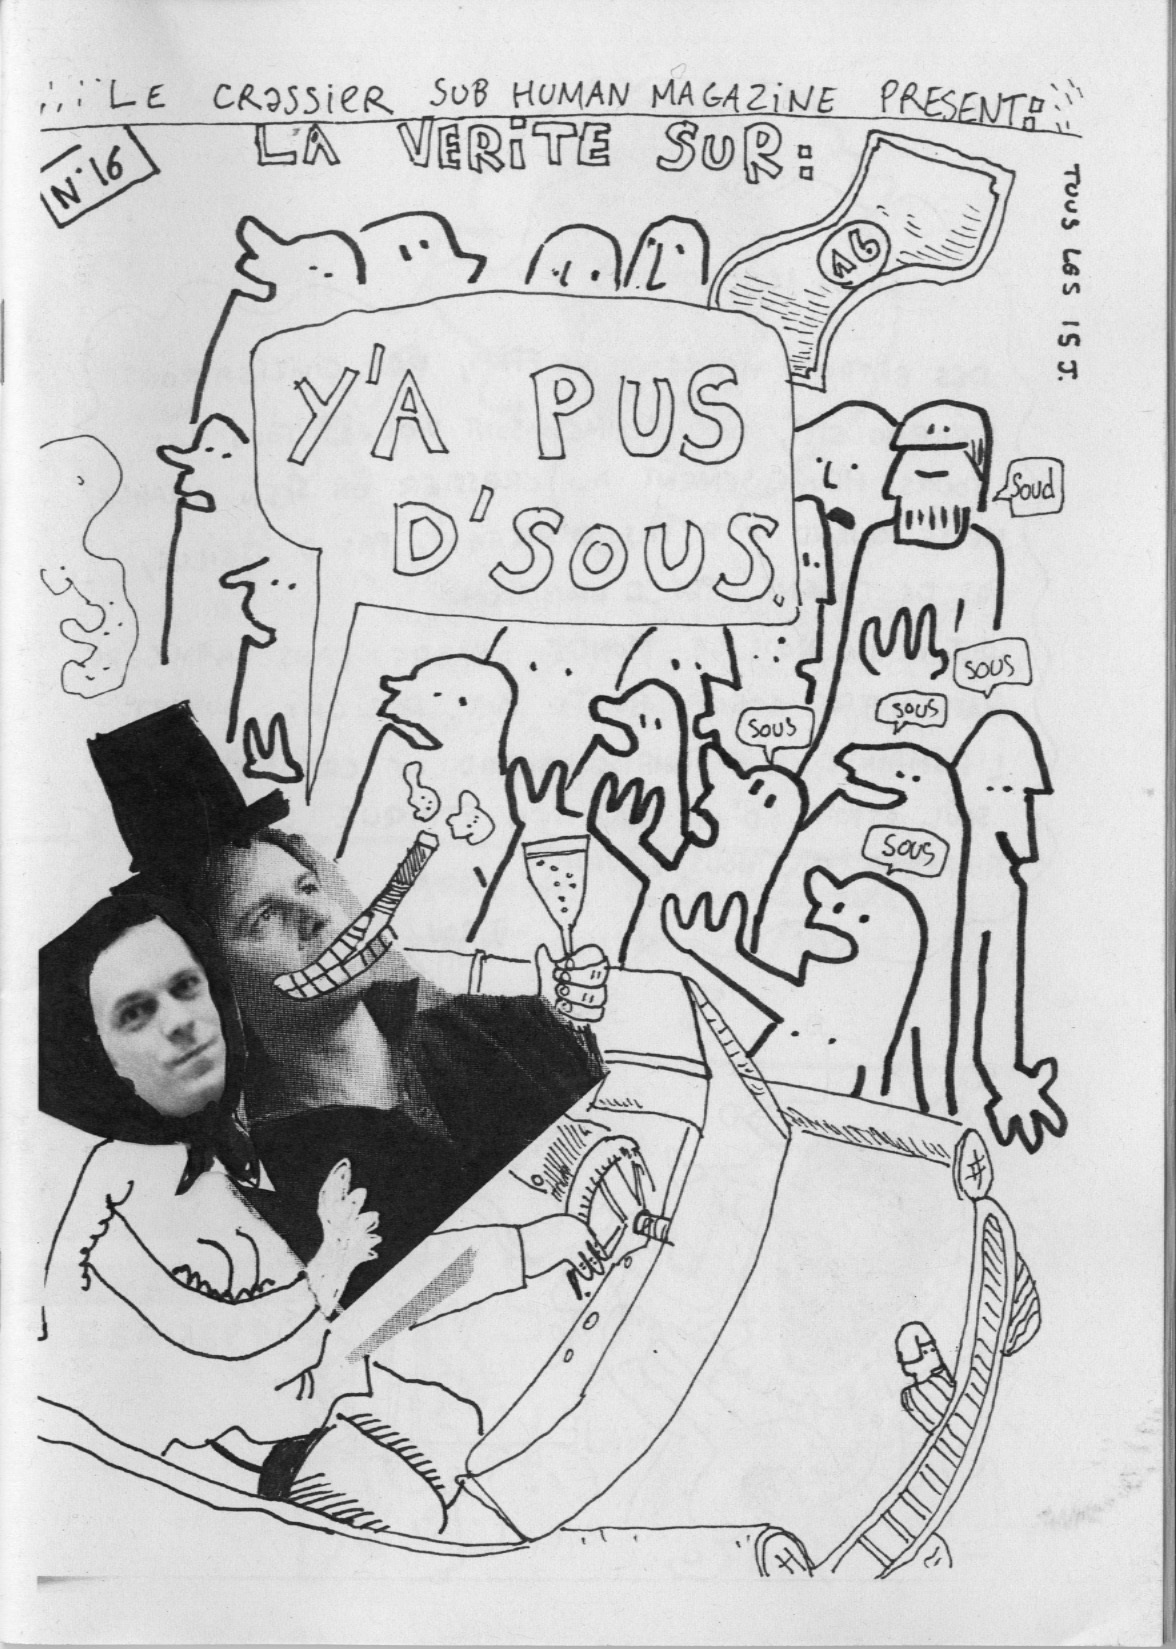 LE CRASSIER SUB HUMAN MAGAZINE PRESENT:
LA VERITE SUR:
N°16
16
TOUS LES 15 J.
Y'A PUS
D'SOUS.
Soud
SOUS
SOUS
SOUS
SOUS